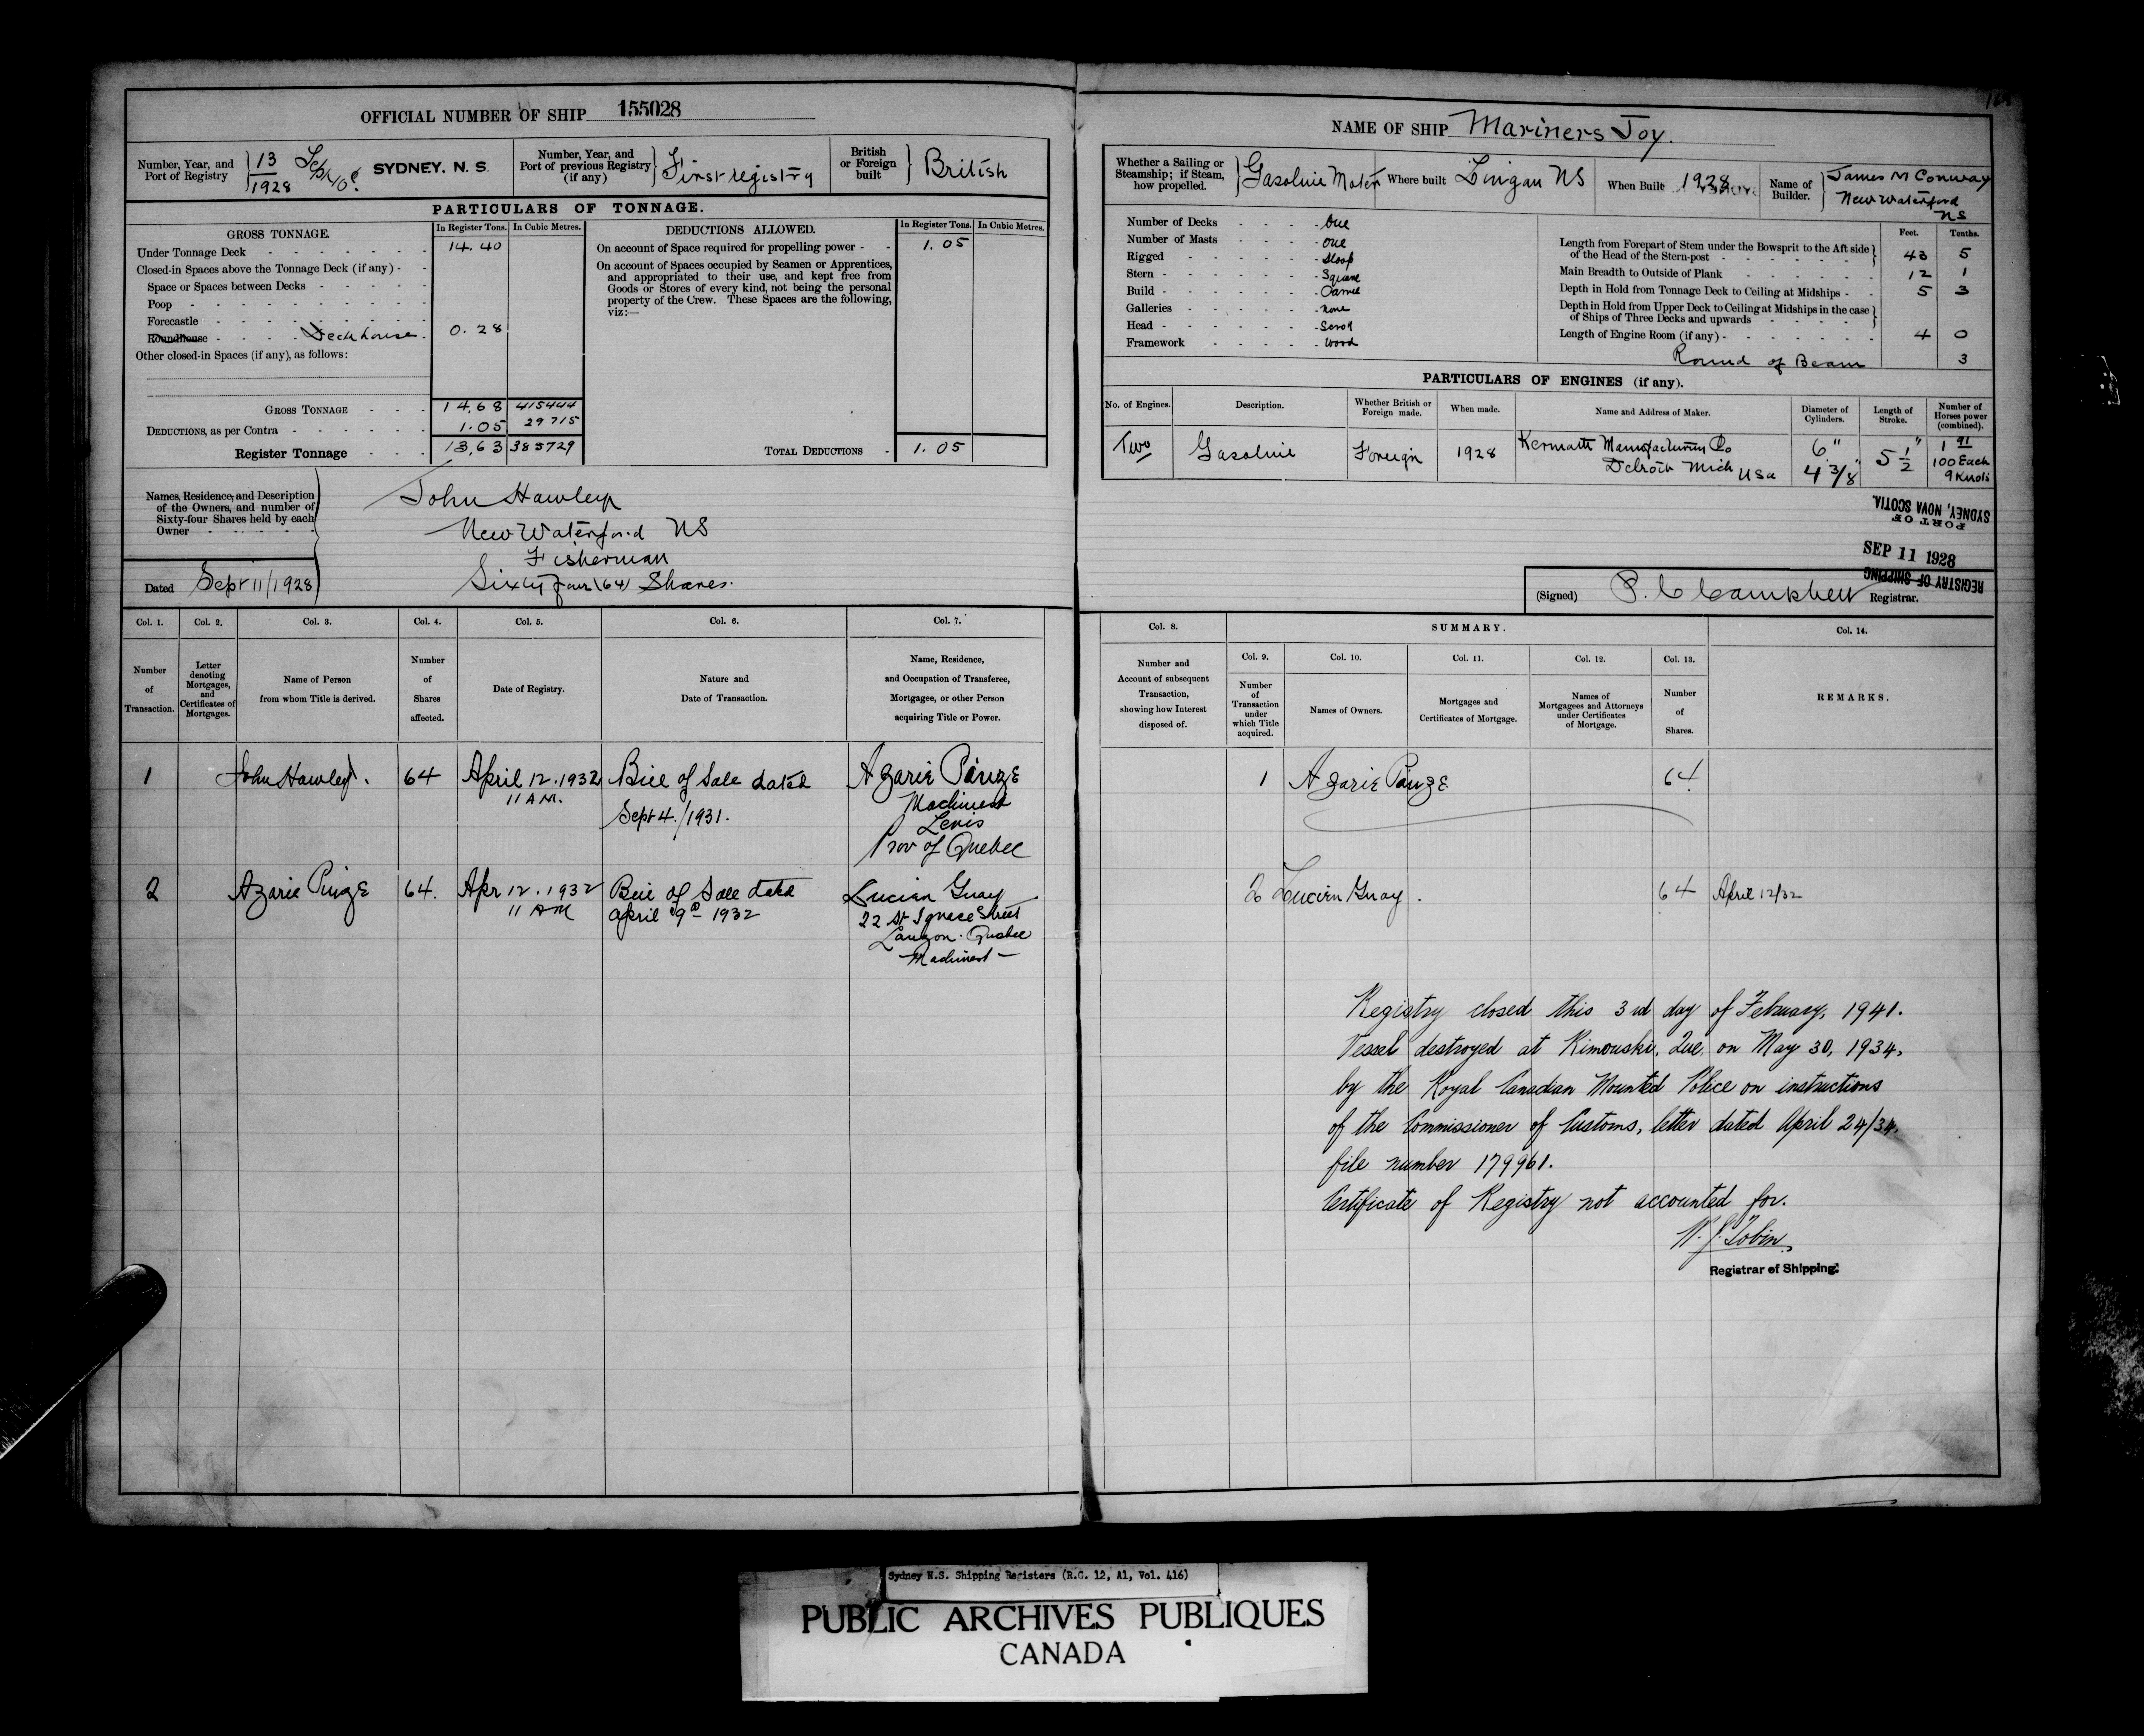 OFFICIAL NUMBER OF SHIP 155028
Number, Year, and Port of Registry 13/1928 SYDNEY, N. S.
Number, Year, and Port of previous Registry (if any) First registry
British or Foreign built British
PARTICULARS OF TONNAGE.
GROSS TONNAGE. In Register Tons. In Cubic Metres.
Under Tonnage Deck 14.40
Closed-in Spaces above the Tonnage Deck (if any)
Space or Spaces between Decks
Poop
Forecastle
Roundhouse Deckhouse 0.28
Other closed-in Spaces (if any), as follows:
GROSS TONNAGE 14.68 415444
DEDUCTIONS, as per Contra 1.05 29715
Register Tonnage 13.63 385729
DEDUCTIONS ALLOWED. In Register Tons. In Cubic Metres.
On account of Space required for propelling power 1.05
On account of Spaces occupied by Seamen or Apprentices,
and appropriated to their use, and kept free from
Goods or Stores of every kind, not being the personal
property of the Crew. These Spaces are the following,
viz:—
TOTAL DEDUCTIONS 1.05
Names, Residence, and Description
of the Owners, and number of
Sixty-four Shares held by each
Owner
John Hawley
New Waterford NS
Fisherman
Sixty four (64) Shares.
Dated Sept 11/1928
Col. 1. Col. 2. Col. 3. Col. 4. Col. 5. Col. 6. Col. 7.
Number of Transaction.
Letter denoting Mortgages, and Certificates of Mortgages.
Name of Person from whom Title is derived.
Number of Shares affected.
Date of Registry.
Nature and Date of Transaction.
Name, Residence, and Occupation of Transferee, Mortgagee, or other Person acquiring Title or Power.
1 John Hawley. 64 April 12. 1932 Bill of Sale dated Azarie
11 A.M. Sept 4./1931. Machinest
Levis
Prov of Quebec
2 Azarie 64. Apr 12. 1932 Bill of Sale dated Lucien Guay
11 AM April 9th 1932 22 St Ignace Street
Lauzon. Quebec
Machinest —
NAME OF SHIP Mariners Joy.
Whether a Sailing or Steamship; if Steam, how propelled. Gasoline Motor
Where built Lingan NS
When Built 1928
Name of Builder. James M Conway
New Waterford
NS
Number of Decks One
Number of Masts one
Rigged Sloop
Stern Square
Build Carvel
Galleries none
Head Scroll
Framework Wood
Feet. Tenths.
Length from Forepart of Stem under the Bowsprit to the Aft side of the Head of the Stern-post 43 5
Main Breadth to Outside of Plank 12 1
Depth in Hold from Tonnage Deck to Ceiling at Midships 5 3
Depth in Hold from Upper Deck to Ceiling at Midships in the case of Ships of Three Decks and upwards
Length of Engine Room (if any) 4 0
Round of Beam 3
PARTICULARS OF ENGINES (if any).
No. of Engines. Description. Whether British or Foreign made. When made. Name and Address of Maker. Diameter of Cylinders. Length of Stroke. Number of Horses power (combined).
Two Gasoline Foreign 1928 Kermath Manufacturing Co 6" 5 1/2" 91
Detroit Mich USA 4 3/8" 100 Each
9 Knots
PORT OF
SYDNEY, NOVA SCOTIA.
SEP 11 1928
REGISTRY OF SHIPPING
(Signed) P. C Campbell Registrar.
Col. 8. SUMMARY. Col. 14.
Col. 9. Col. 10. Col. 11. Col. 12. Col. 13.
Number and Account of subsequent Transaction, showing how Interest disposed of.
Number of Transaction under which Title acquired.
Names of Owners.
Mortgages and Certificates of Mortgage.
Names of Mortgagees and Attorneys under Certificates of Mortgage.
Number of Shares.
REMARKS.
1 Azarie 64
2 Lucien Guay. 64 April 12/32
Registry closed this 3rd day of February, 1941.
Vessel destroyed at Rimouski, Que. on May 30, 1934,
by the Royal Canadian Mounted Police on instructions
of the Commissioner of Customs, letter dated April 24/34.
file number 179961.
Certificate of Registry not accounted for.
Tobin
Registrar of Shipping.
Sydney N.S. Shipping Registers (R.G. 12, A1, Vol. 416)
PUBLIC ARCHIVES PUBLIQUES
CANADA